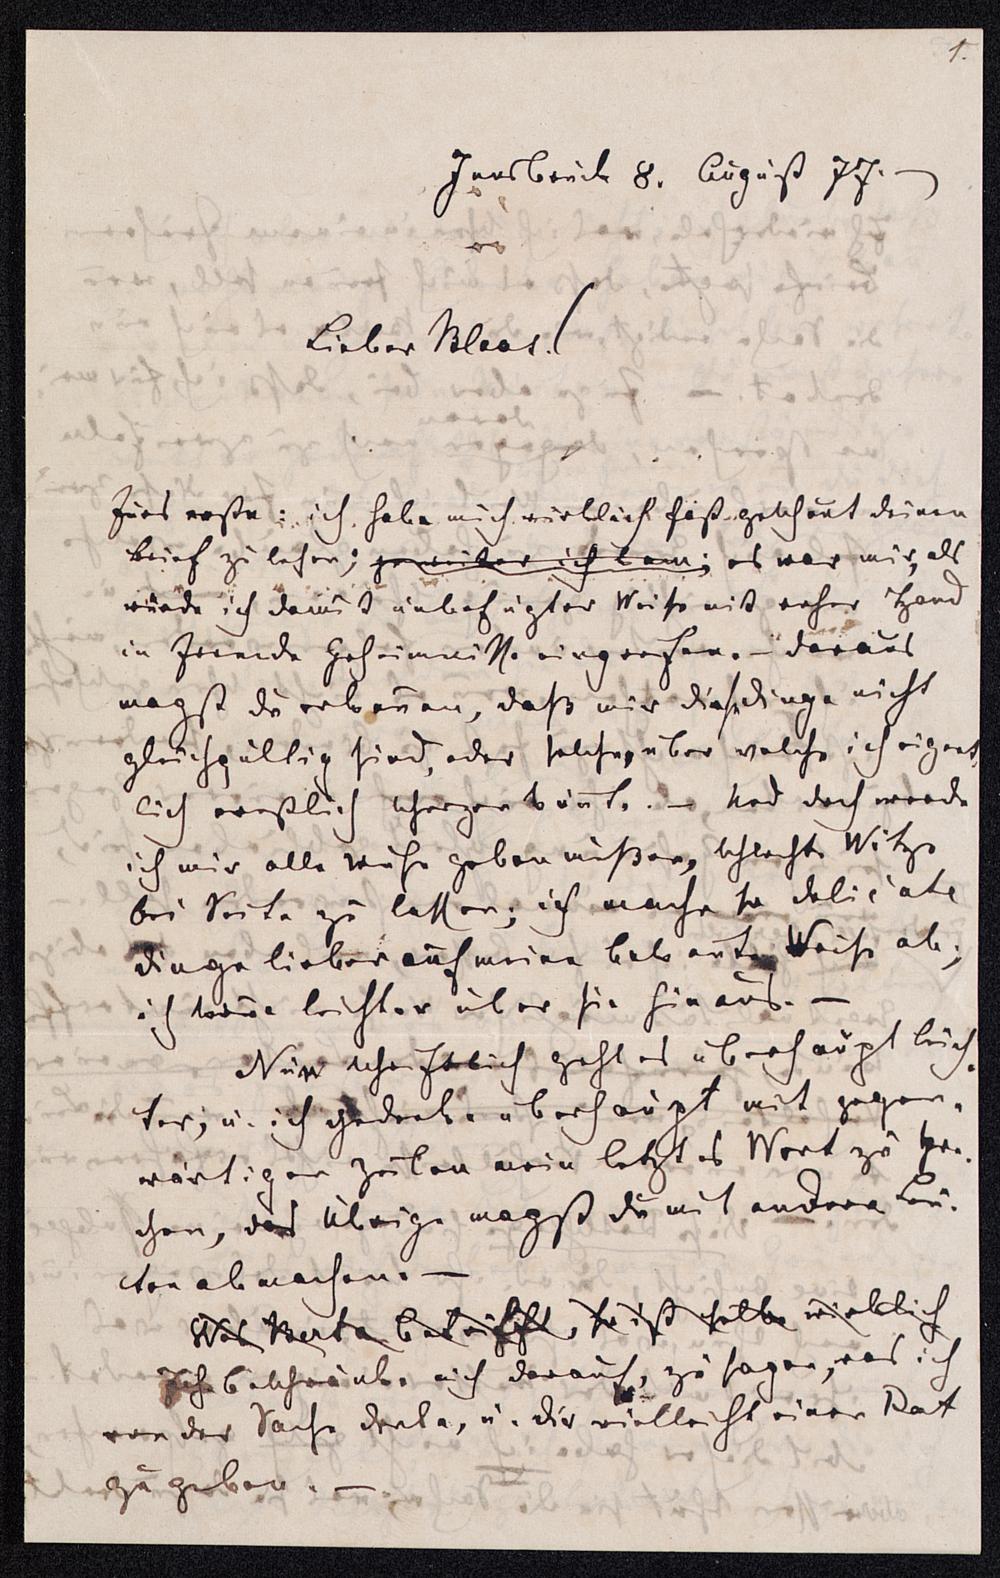 1.
Innsbruck 8. August 77. —
Lieber Blaas!
Fürs erste: ich habe mich wirklich fast gescheut deinen
brief zu lesen; ich kam; es war mir, als
würde ich damit unbefugter Weise mit roher Hand
in fremde Geheimnisse eingreifen. — daraus
magst du erkennen, daß mir diese dinge nicht
gleichgültig sind, oder solche, über welche ich eigent-
lich scherzen könnte. — Und doch werde
ich mir alle Mühe geben müßen, schlechte Witze
bei Seite zu lassen; ich mache so delicate
dinge lieber auf meine bekannte Weise ab;
ich komme leichter über sie hinaus. —
Nun schriftlich geht es überhaupt leich-
ter; u. ich gedenke überhaupt mit gegen-
wärtigen Zeilen mein letztes Wort zu spre-
chen, das Übrige magst du mit andern Leu-
ten abmachen. —
Was Berta betrifft, so ist selbe wirklich
Ich beschränke mich darauf, zu sagen, was ich
von der Sache denke, u. dir vielleicht einen Rat
zu geben. —